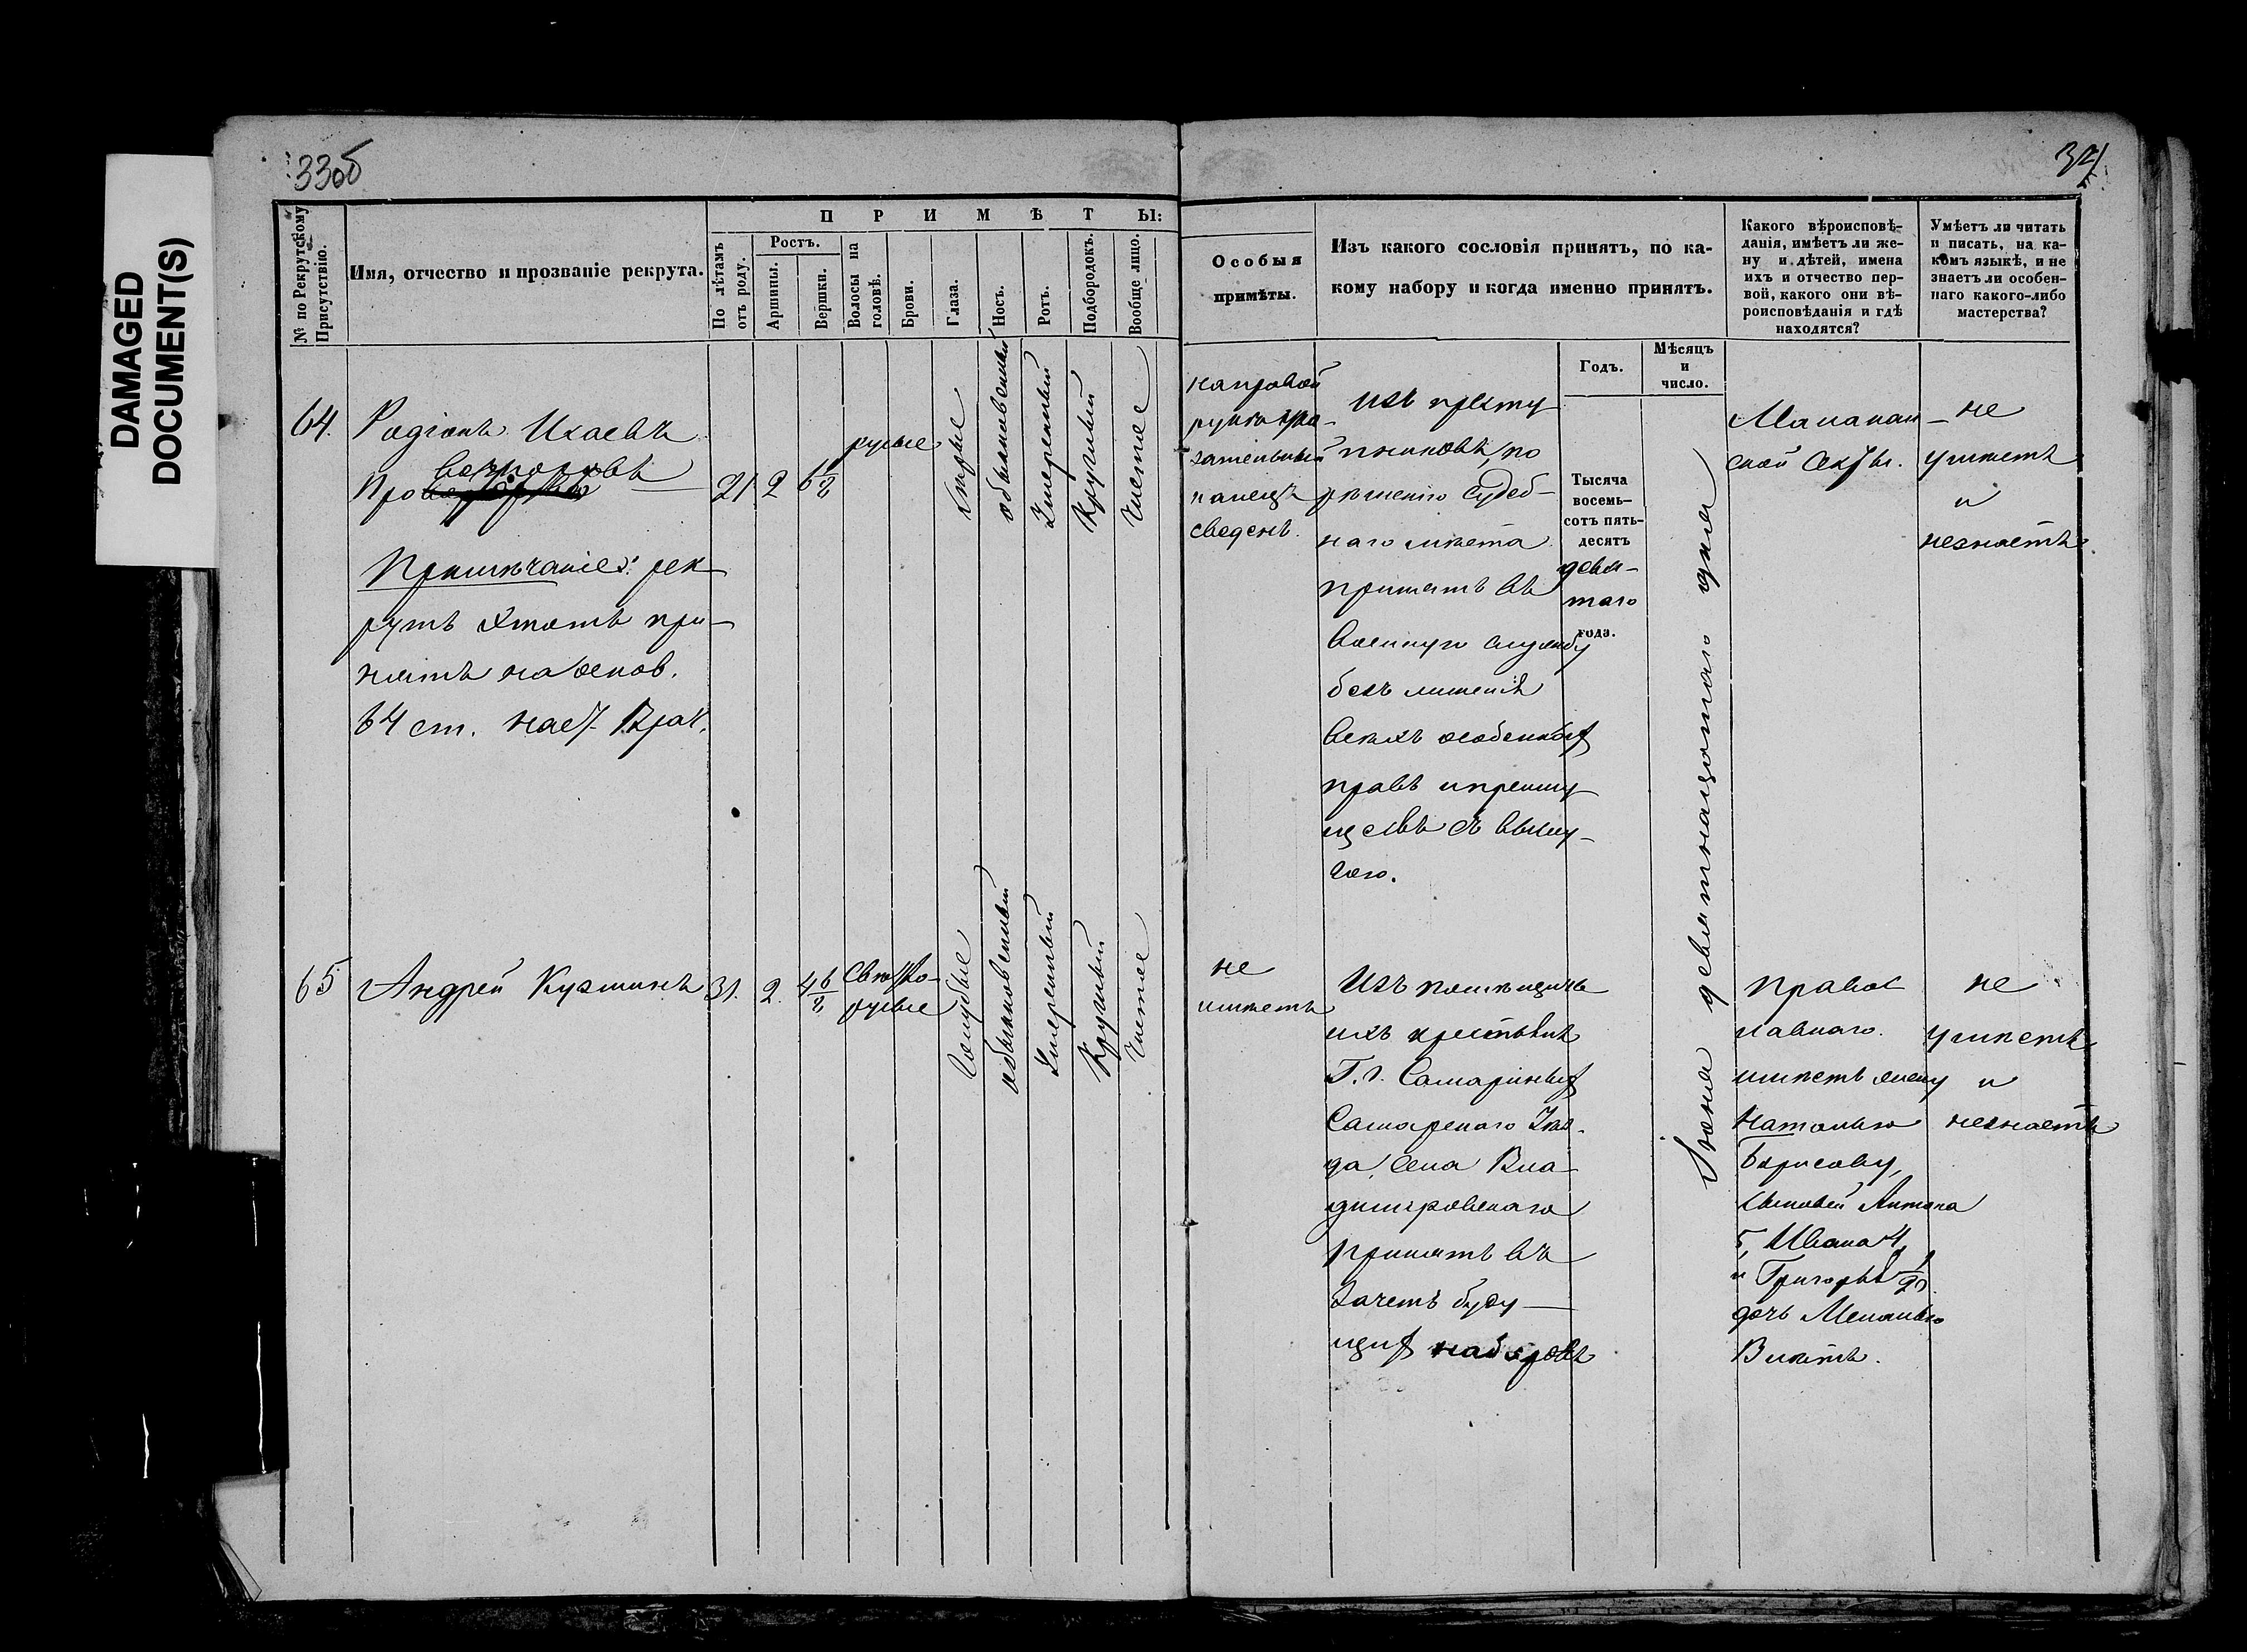 DAMAGED
DOCUMENT(S)
33об
34
№ по Рекрутскому
Присутствію.
Имя, отчество и прозваніе рекрута.
ПРИМѢТЫ:
По лѣтамъ
отъ роду.
Ростъ.
Аршины.
Вершки.
Волосы на
головѣ.
Брови.
Глаза.
Носъ.
Ротъ.
Подбородокъ.
Вообще лицо.
Особыя
примѣты.
Изъ какого сословія принятъ, по ка-
кому набору и когда именно принятъ.
Годъ.
Мѣсяцъ
и
число.
Какого вѣроисповѣ-
данія, имѣетъ ли же-
ну и дѣтей, имена
ихъ и отчество пер-
вой, какого они вѣ-
роисповѣданія и гдѣ
находятся?
Умѣетъ ли читать
и писать, на ка-
комъ языкѣ, и не
знаетъ ли особен-
наго какого-либо
мастерства?
64.
Родіонъ Исаевъ
Примѣчаніе: рек-
рутъ этотъ при-
нятъ на основ.
64 ст. наст. Врач.
21
2
6/8
русые
обыкновенный
Умеренный
Круглый
Чистое
на правой
палецъ
сведенъ.
изъ престу
пниковъ, по
рѣшенію Судеб-
наго мѣста
принятъ въ
военную службу
безъ лишенія
всѣхъ особенных
правъ и преиму
ществъ съ выслу-
гою.
Тысяча
восемь-
сотъ пять-
десятъ
девя-
таго
года.
Іюня девятнадцатаго дня
Малакан
ской Секты.
не
умѣетъ
и
незнаетъ.
65
Андрей Кузминъ
31.
2.
4 6/8
Светло-
русые
Голубые
обыкновенный
Умеренный
Круглый
Чистое
не
имѣетъ
Изъ помѣщичь
ихъ крестьянъ
Г.г. Самариныхъ
Самарскаго Уѣз-
да, Села Вла-
димировскаго
принятъ въ
Зачетъ буду-
щих наборовъ
Правос
лавнаго.
имѣетъ жену
Наталью
Борисову,
сыновей Антона
5, Ивана 4,
и Григорья 1/2 г.
дочь Меланью
8 лѣтъ.
не
умѣетъ
и
незнаетъ